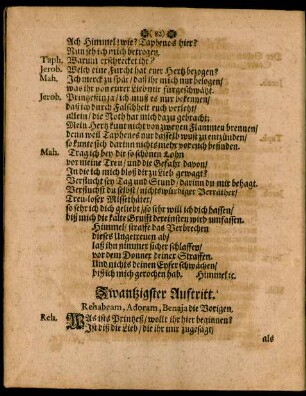 ( 82 )
Ach Himmel! wie? Taphenes hier?
Nun seh ich mich betrogen.
Taph. Warum erschrecket ihr?
Jerob. Welch eine Furcht hat eur Hertz bezogen?
Mah. Ich merck zu spät / daß ihr mich nur belogen /
was ihr von eurer Lieb mir fürgeschwätzt.
Jerob. Printzeßin ja / ich muß es nur bekennen /
daß ich durch Falschheit euch verletzt /
allein / die Noth hat mich dazu gebracht:
Mein Hertz kunt nicht von zweyen Flammen brennen /
denn weil Taphnes nur dasselb wust zu entzünden /
so kunte sich darinn nichts mehr vor euch befinden.
Mah. Trag ich bey dir so schönen Lohn
vor meine Treu / und die Gefahr davon /
In die ich mich bloß dir zu Lieb gewagt?
Verflucht sey Tag und Stund / darinn du mir behagt.
Verflucht du selbst / nichtswürdiger Verräther /
Treu-loser Missethäter /
so sehr ich dich geliebt / so sehr will ich dich hassen /
biß mich die kalte Grufft dereinsten wird umfassen.
Himmel / straffe das Verbrechen
dieses Ungetreuen ab /
laß ihn nimmer sicher schlaffen /
vor dem Donner deiner Straffen.
Und nichts deinen Eyfer schwächen /
biß ich mich gerochen hab. Himmel ꝛc.
Zwantzigster Auftritt.
Rehabeam, Adoram, Benaja die Vorigen.
Reh. Was ists Printzeß / wollt ihr hier beginnen?
Ist diß die Lieb / die ihr mir zugesagt /
als